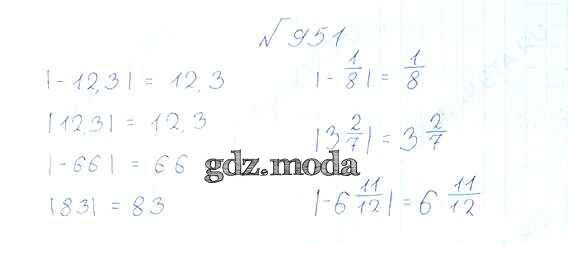 № 951
|-12,3| = 12,3
|12,3| = 12,3
|-66| = 66
|83| = 83
|-1/8| = 1/8
|3 2/7| = 3 2/7
|-6 11/12| = 6 11/12
gdz.moda